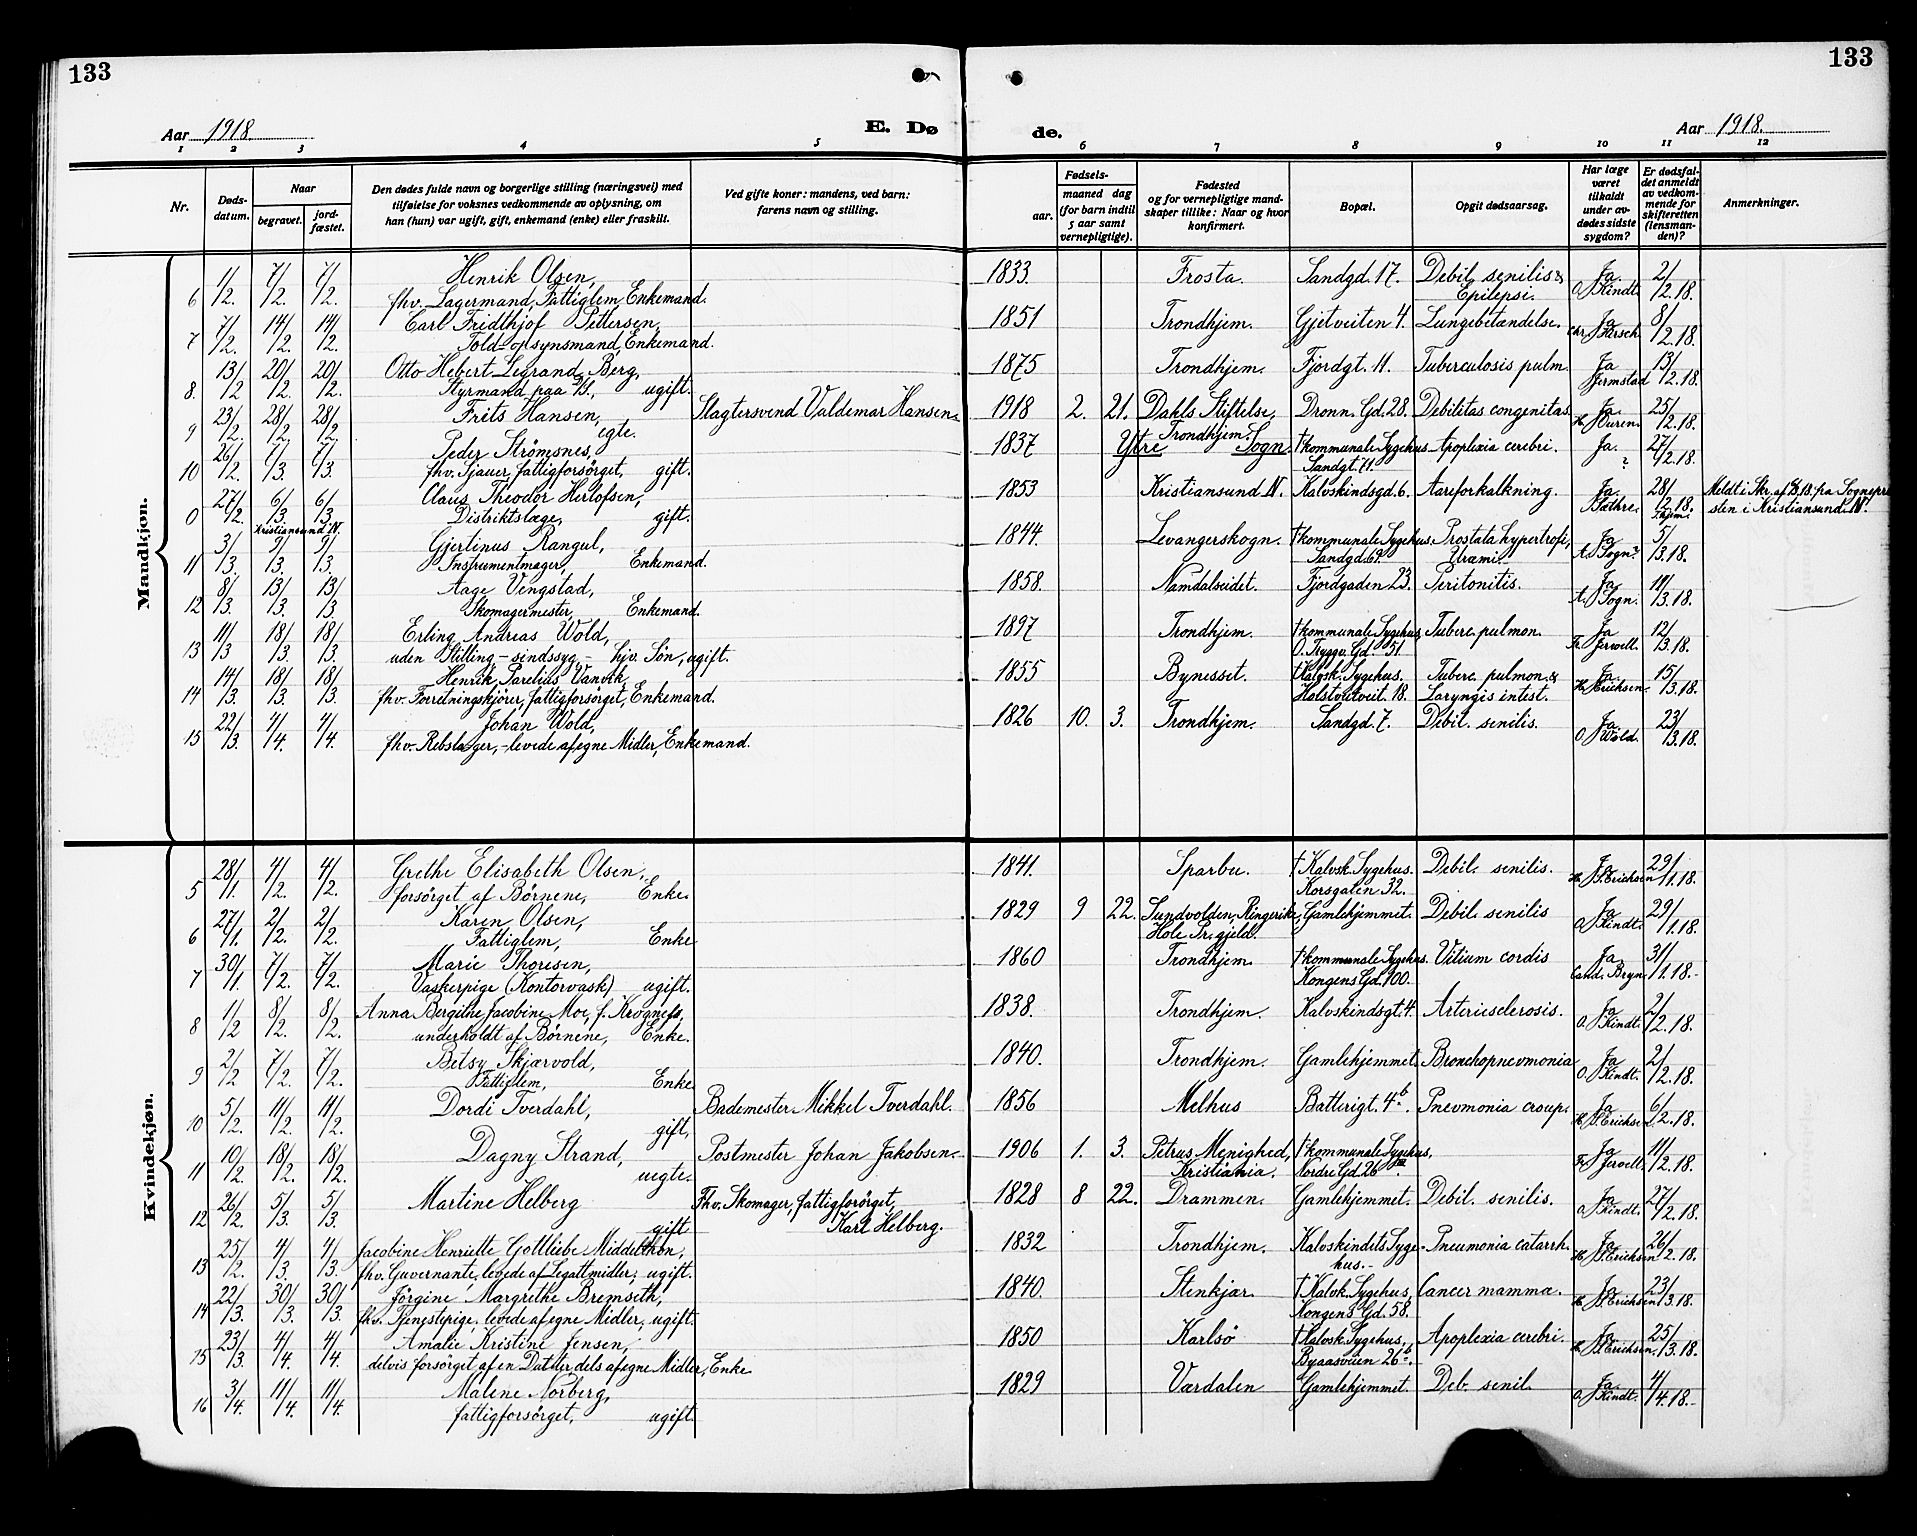 133
133
Aar 1918.
E. Dø
de.
Aar 1918.
1 2 3 4 5 6 7 8 9 10 11 12
Nr.
Døds-
datum.
Naar
begravet.
jord-
fæstet.
Den dødes fulde navn og borgerlige stilling (næringsvei) med
tilføielse for voksnes vedkommende av oplysning, om
han (hun) var ugift, gift, enkemand (enke) eller fraskilt.
Ved gifte koner: mandens, ved barn:
farens navn og stilling.
Fødsels-
aar.
maaned dag
(for barn indtil
5 aar samt
vernepligtige).
Fødested
og for vernepligtige mand-
skaper tillike: Naar og hvor
konfirmert.
Bopæl.
Opgit dødsaarsag.
Har læge
været
tilkaldt
under av-
dødes sidste
sygdom?
Er dødsfal-
det anmeldt
av vedkom-
mende for
skifteretten
(lensman-
den)?
Anmerkninger.
Mandkjøn.
6 1/2. 7/2. 7/2. Henrik Olsen, 1833. Frosta. Sandgd. 17. Debil. senilis & Ja 2/2.18.
fhv. Lagermand, Fattiglem, Enkemand. Epilepsi. O. Kindt.
7 7/2. 14/2. 14/2. Carl Fridthjof Pettersen, 1851 Trondhjem. Gjetveiten 4. Lungebetændelse. Ja 8/2.18.
Told-opsynsmand, Enkemand. Chr. J. Hirsch.
8. 13/2 20/2. 20/2. Otto Hebert Legrand Berg, 1875 Trondhjem. Fjordgt. 11. Tuberculosis pulm. Ja 13/2.18.
Styrmand paa D/S., ugift. Jermstad
9 23/2. 28/2. 28/2. Frits Hansen, Slagtersvend Valdemar Hansen. 1918 2. 21. Dahls Stiftelse, Dronn. Gd. 28. Debilitas congenitas. Ja. 25/2.18.
egte. Trondhjem.
10 26/2. 7/3. 7/3. Peder Strömsnes, 1837 Ytre Sogn †kommunale Sygehus Apoplexia cerebri. Ja. 27/2.18.
fhv. Sjauer, fattigforsörget, gift. Sandgt. 71. ?
0 27/2. 6/3. 6/3. Claus Theodor Herlofsen, 1853 Kristiansund N. Kalvskindsgd. 6. Aareforkalkning. Ja. 28/2.18. Meldt i Skr. af fra Sognepre
Kristiansund N. Distriktslæge, gift. Sæthre. Thjem. sten i Kristiansund N.
11 3/3. 9/3. 9/3. Gjertinus Rangul, 1844. Levangerskogn. †kommunale Sygehus. Prostata hypertrofi, Ja 5/3.18.
Instrumentmager, Enkemand. Sandgd. 69. Urami. A. Sogn
12 8/3. 13/3. 13/3 Aage Vengstad, 1858. Namdalseidet. Fjordgaden 23. Peritonitis. Ja 11/3.18.
Skomagermester, Enkemand. A. Sogn.
13 11/3 18/3. 18/3. Erling Andreas Wold, 1897 Trondhjem. †kommunale Sygehus, Tuberc. pulmon. Ja 12/3.18.
uden Stilling - sindssyg, - hjv. Sön, ugift. O. Tryggv. Gd. 51 Fr. Jervell.
14 14/3. 18/3. 18/3. Henrik Parelius Vanvik, 1855 Bynesset. †Kalvsk. Sygehus. Tuberc. pulmon. & Ja. 15/3.18.
fhv. Forretningskjörer, fattigforsörget, Enkemand. Holstveit. 18. Laryngis intest. H. Erichsen.
15 22/3. 4/4. 4/4. Johan Wold, 1826 10. 3. Trondhjem. Sandgd. 7. Debil. senilis. Ja 23/3.18.
fhv. Rebslager, - levede af egne Midler, Enkemand. O. Wold.
Kvindekjøn.
5 28/1. 4/2. 4/2. Grethe Elisabeth Olsen, 1841. Sparbu. † Kalvsk. Sygehus. Debil. senilis. Ja 29/1.18.
forsörget af Börnene, Enke. Korsgaten 32. H. S. Erichsen
6 27/1. 2/2. 2/2. Karen Olsen, 1829 9 22. Sundvolden, Ringerike, Gamlehjemmet. Debil. senilis Ja 29/1.18.
Fattiglem, Enke Hole Pr.gjeld. O. Kindt.
7 30/1. 7/2. 7/2. Marie Thoresen, 1860 Trondhjem. †kommunale Sygehus. Vitium cordis Ja 31/1.18.-
Vaskerpige (Kontorvask) ugift. Kongens Gd. 100. Cand. Bryn
8 1/2 8/2. 8/2. Anna Bergithe Jacobine Moe, f. Krogness, 1838. Trondhjem. Kalvskindsgt. 4. Arteriesclerosis. Ja 2/2.18.
underholdt af Börnene, Enke. O. Kindt.
9 2/2 7/2. 7/2. Betsy Skjærvold, 1840. Trondhjem. Gamlehjemmet Bronchopnevmonia Ja 2/2.18.
Fattiglem, Enke O. Kindt.
10 5/2. 11/2. 11/2. Dordi Tverdahl, Bademester Mikkel Tverdahl. 1856 Melhus Batterigt. 4b. Pnevmonia croup. Ja 6/2.18.
gift, H. S. Erichsen
11 10/2. 18/2. 18/2. Dagny Strand, Postmester Johan Jakobsen. 1906 1. 3. Petrus Menighed, †kommunale Sygehus, Ja 11/2.18.
uegte. Kristiania. Nordre Gd. 26 III. Fr. Jervell.
12 26/2. 5/3. 5/3. Martine Helberg Fhv. Skomager, fattigforsörget, 1828 8 22. Drammen. Gamlehjemmet. Debil. senilis. Ja 27/2.18.
gift Karl Helberg. O. Kindt.
13 25/2. 4/3. 4/3. Jacobine Henriette Gottliebe Middelthon, 1832 Trondhjem. Kalvskindets Syge- Pneumonia catarrh. Ja 26/2.18.
fhv. Guvernante, levede af Legatmidler, ugift. hus.- H. S. Erichsen
14 22/3. 30/3. 30/3. Jörgine Margrethe Bremseth, 1840. Stenkjær. †Kalvsk. Sygehus, Cancer mammæ. Ja 23/3.18.
fhv. Tjenestepige, levede af egne Midler, ugift. Kongens Gd. 58. H. S. Erichsen
15 23/3. 4/4. 4/4. Amalie Kristine Jensen, 1850 Karlsö †Kalvsk. Sygehus, Apoplexia cerebri. Ja 25/3.18.
delvis forsörget af en Datter, dels af egne Midler, Enke Byaasveien 26b. H. S. Erichsen.
16 3/4. 11/4. 11/4. Malene Norberg, 1829 Værdalen Gamlehjemmet. Deb. senil. Ja 4/4.18.-
fattigforsörget, ugift. O. Kindt.